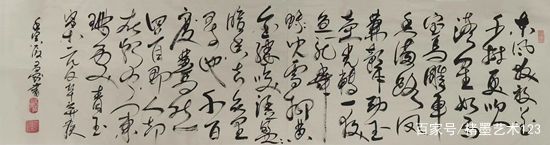 东风夜放花
千树更吹
落星如雨
宝马雕车
香满路凤
箫声动玉
壶光转一夜
鱼龙舞
蛾儿雪柳黄
金缕笑语盈
盈暗香去众里
寻他千百
度蓦然
回首那人却
在灯火阑
珊处青玉
案元夕
百家号/墨艺术123